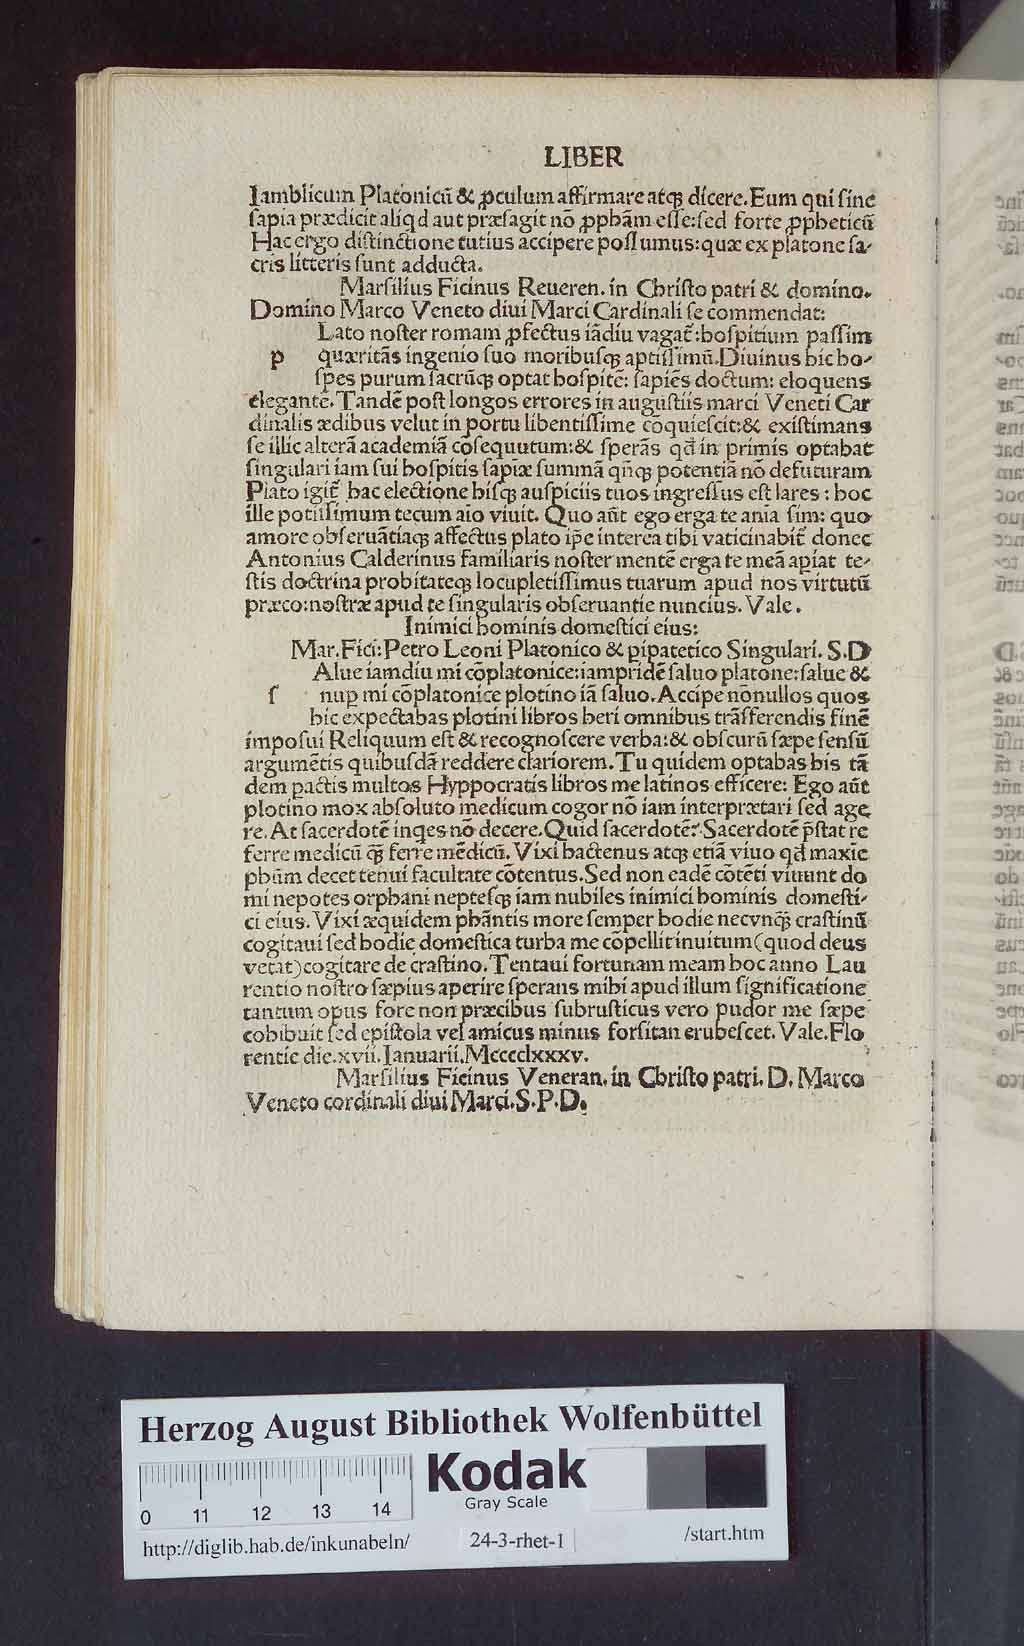 LIBER
Iamblicum Platonicū & ꝓculum affirmare atqꝫ dicere. Eum qui sine
sapīa prædicit aliqd aut præsagit nō ꝓphām esse: sed forte ꝓpheticū
Hac ergo distinctione tutius accipere possumus: quæ ex platone sa-
cris litteris sunt adducta.
Marsilius Ficinus Reueren. in Christo patri & domino.
Domino Marco Veneto diui Marci Cardinali se commendat:
Lato noster romam ꝓfectus iādiu vagat̄: hospitium passim
p quæritās ingenio suo moribusqꝫ aptissimū. Diuinus hic ho-
spes purum sacrūqꝫ optat hospitē: sapiēs doctum: eloquens
elegantē. Tandē post longos errores in augustiis marci Veneti Car
dinalis ædibus velut in portu libentissime cōquiescit: & existimans
se illic alterā academiā cōsequutum: & sperās qd̄ in primis optabat
singulari iam sui hospitis sapiæ summā qn̄qꝫ potentiā nō defuturam
Plato igit̄ hac electione hisqꝫ auspiciis tuos ingressus est lares: hoc
ille potissimum tecum aīo viuit. Quo aūt ego erga te anīa sim: quo
amore obseruātiaqꝫ affectus plato ip̄e interea tibi vaticinabit̄ donec
Antonius Calderinus familiaris noster mentē erga te meā aꝑiat te-
stis doctrina probitateqꝫ locupletissimus tuarum apud nos virtutū
præco: nostræ apud te singularis obseruantie nuncius. Vale.
Inimici hominis domestici eius:
Mar. Fici: Petro Leoni Platonico & ꝑipatetico Singulari. S.D
Alue iamdiu mi cōplatonice: iampridē saluo platone: salue &
s nuꝑ mi cōplatonice plotino iā saluo. Accipe nōnullos quos
hic expectabas plotini libros heri omnibus trāsferendis finē
imposui Reliquum est & recognoscere verba: & obscurū sæpe sensū
argumētis quibusdā reddere clariorem. Tu quidem optabas his tā
dem ꝑactis multos Hyppocratis libros me latinos efficere: Ego aūt
plotino mox absoluto medicum cogor nō iam interprætari sed age
re. At sacerdotē inqes nō decere. Quid sacerdotē? Sacerdotē p̄stat re
ferre medicū qꝫ̄ ferre mēdicū. Vixi hactenus atqꝫ etiā viuo qd̄ maxīe
phūm decet tenui facultate cōtentus. Sed non eadē cōtēti viuunt do
mi nepotes orphani neptesqꝫ iam nubiles inimici hominis domesti-
ci eius. Vixi æquidem phāntis more semper hodie necvnqꝫ̄ crastinū
cogitaui sed hodie domestica turba me cōpellit inuitum (quod deus
vetat) cogitare de crastino. Tentaui fortunam meam hoc anno Lau
rentio nostro sæpius aperire sperans mihi apud illum significatione
tantum opus fore non præcibus subrusticus vero pudor me sæpe
cohibuit sed epistola vel amicus minus forsitan erubescet. Vale. Flo
rentie die. xvii. Ianuarii. Mcccclxxxv.
Marsilius Ficinus Veneran. in Christo patri. D. Marco
Veneto cordinali diui Marci. S.P.D.
Herzog August Bibliothek Wolfenbüttel
Kodak
Gray Scale
0 11 12 13 14
http://diglib.hab.de/inkunabeln/ 24-3-rhet-1 /start.htm